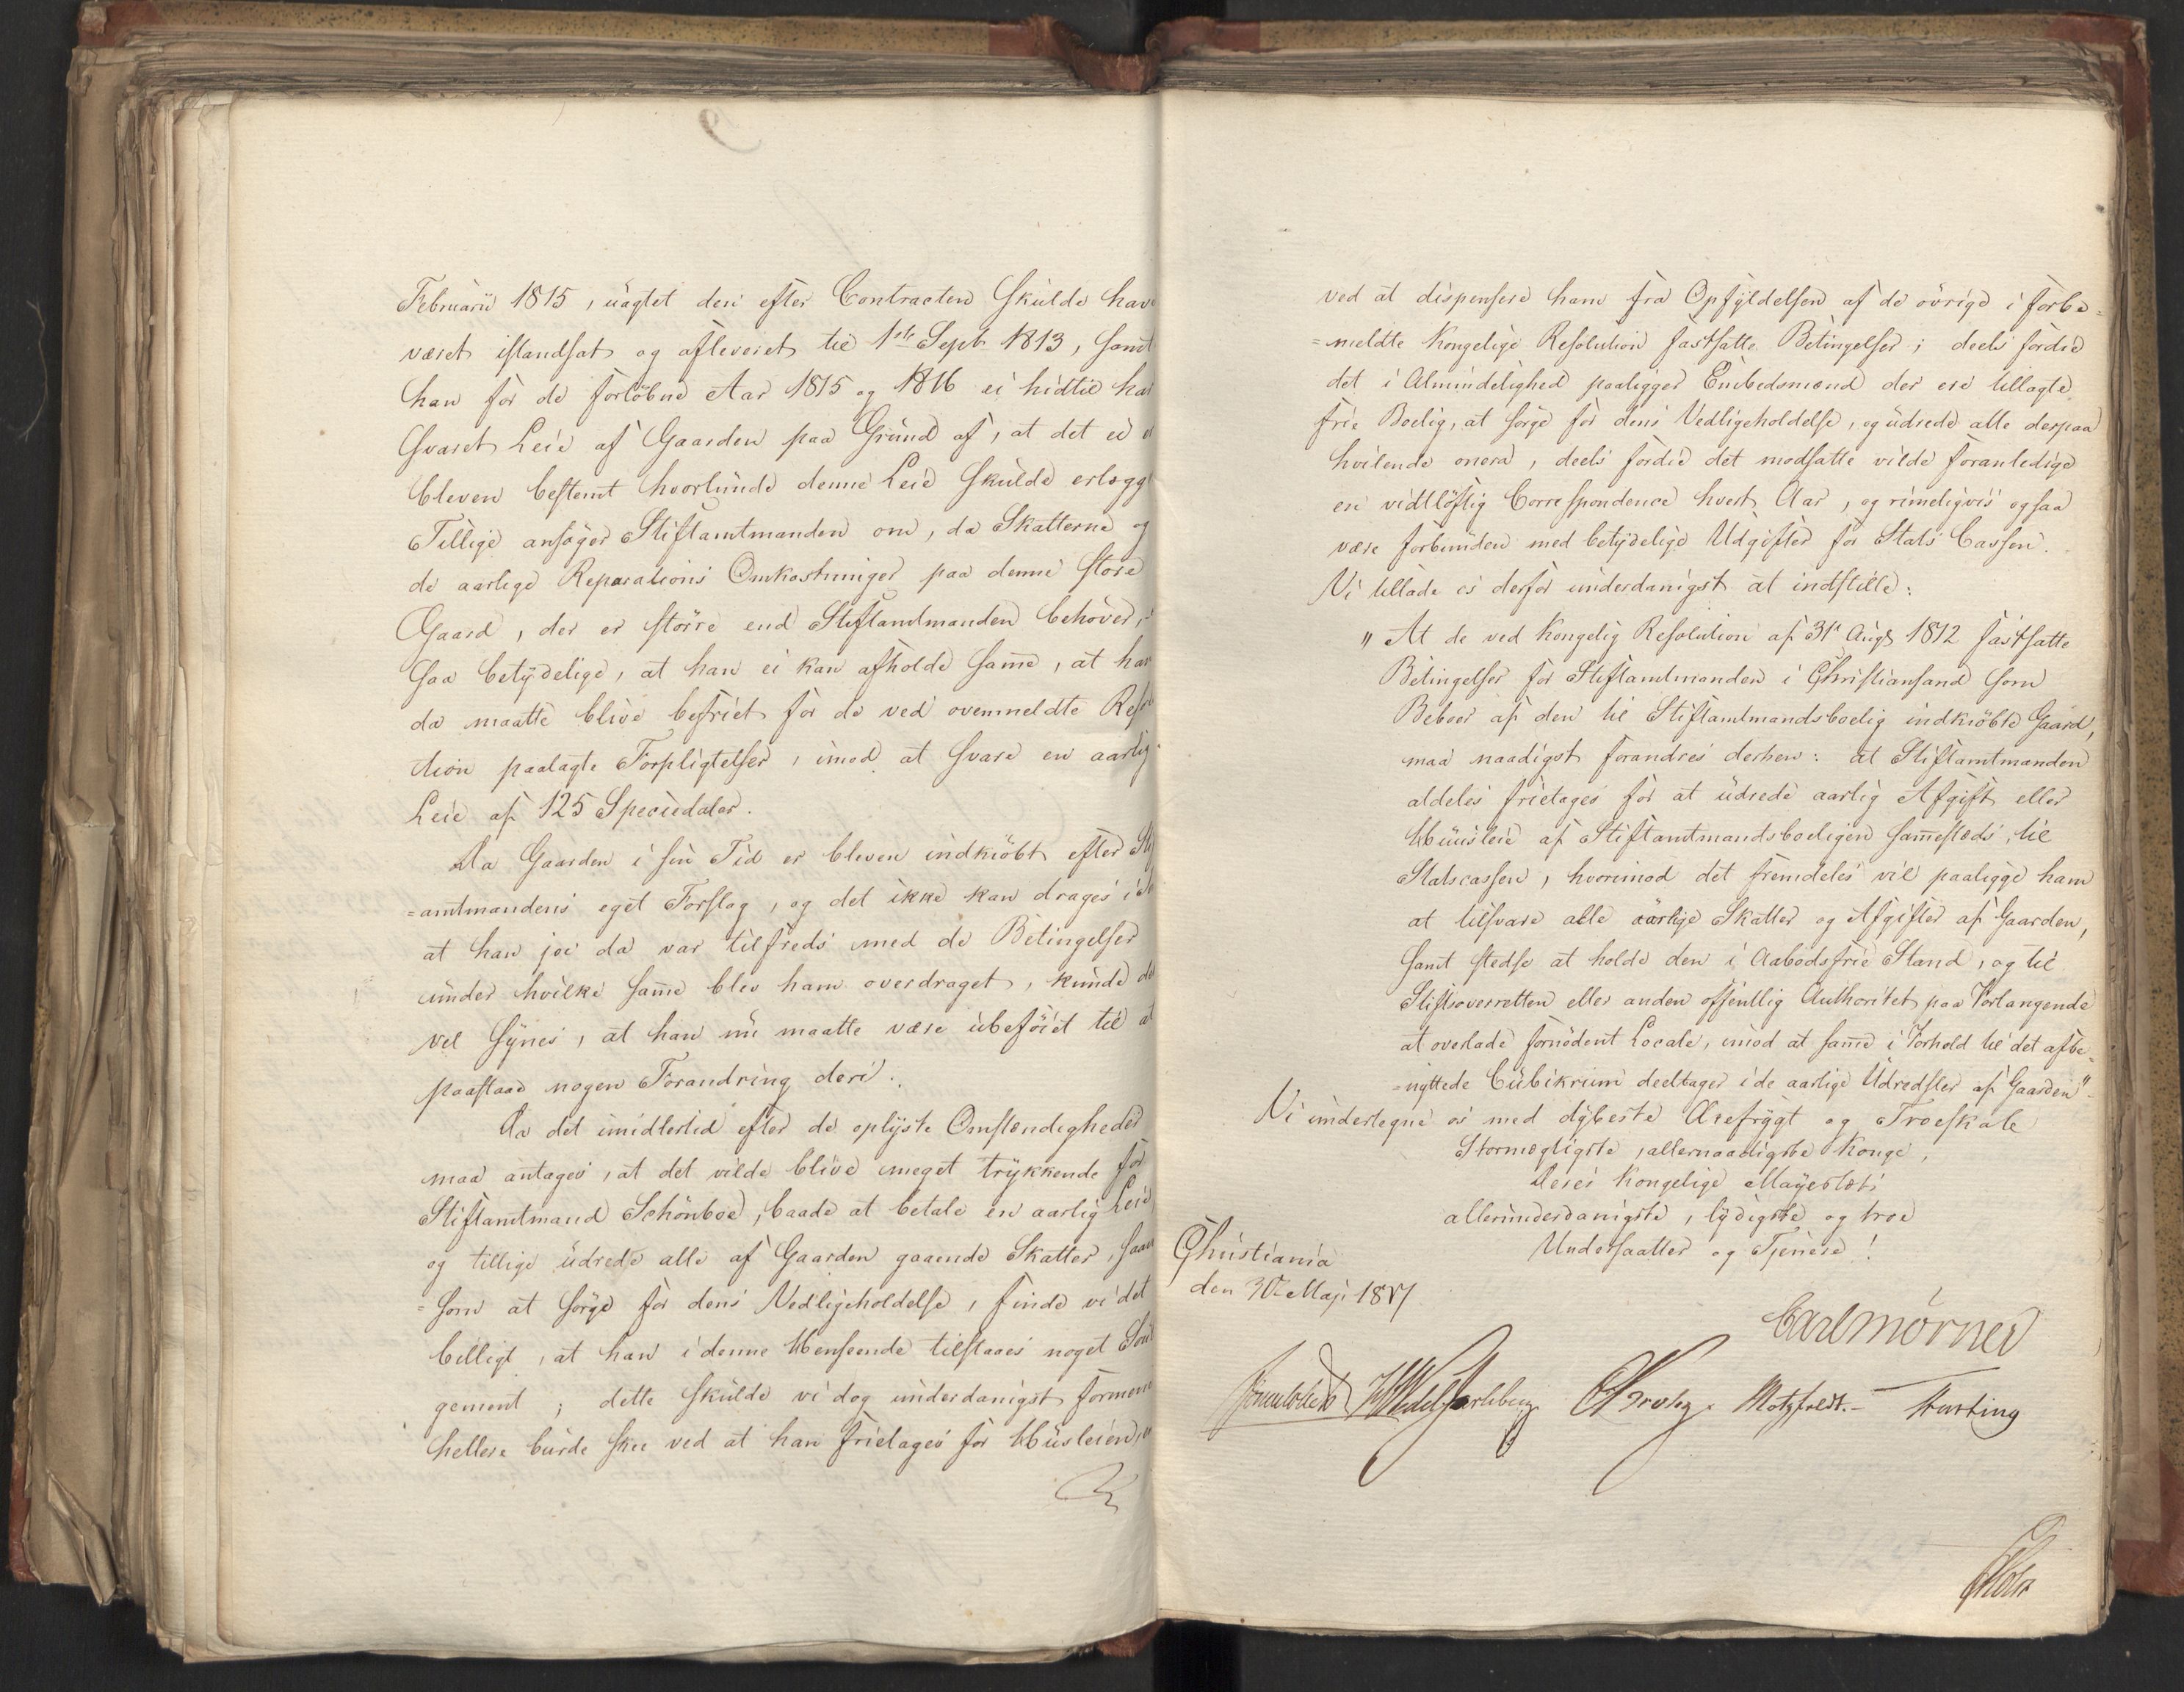 Februarii 1815, uagtet den efter Contracten skulde have
været istandsat og afleveret til 1ste Sept. 1813, samt
han for de forløbne Aar 1815 og 1816 ei hidtil har
svaret Leie af Gaarden paa Grund af, at det ei er
bleven bestemt hvorlunde denne Leie skulde erlægges
Tillige ansøger Stiftamtmanden om, da Skatterne og
de aarlige Reparations Omkostninger paa denne store
Gaard, der er større end Stiftamtmanden behøver,
saa betydelige, at han ei kan afholde samme, at han
da maatte blive befriet for de ved ovenmeldte Resolu
tion paalagte Forpligtelser, imod at svare en aarlig
Leie af 125 Speciedaler.
Da Gaarden i sin Tid er bleven indkiøbt efter Stift
=amtmandens eget Forslag, og det ikke kan drages i
at han jo da var tilfreds med de Betingelser
under hvilke samme blev ham overdraget, kunde det
vel synes, at han nu maatte være ubeføiet til at
paastaae nogen Forandring deri.
Da det imidlertid efter de oplyste Omstændigheder
maa antages, at det vilde blive meget trykkende for
Stiftamtmand Schönboe, baade at betale en aarlig Leie,
og tillige udrede alle af Gaarden gaaende Skatter, saa
=som at sørge for dens Vedligeholdelse, finde vi det
billigt, at han i denne Henseende tilstaaes noget Soula
gement; dette skulde vi dog underdanigst formene
hellere burde skee ved at han frietages for Huusleien,
ved at dispensere ham fra Opfyldelsen af de øvrige i forbe=
=meldte Kongelige Resolution fastsatte Betingelser; deels fordie
det i Almindelighed paaligger Embedsmænd der ere tillagte
frie Boelig, at sørge for dens Vedligeholdelse, og udrede alle derpaa
hvilende onera, deels fordie det modsatte vilde foranledige
en vidtløftig Correspondence hvert Aar, og rimeligviis ogsaa
være forbunden med betydelige Udgifter for Stats Cassen.
Vi tillade os derfor underdanigst at indstille:
"At de ved Kongelig Resolution af 31te Aug. 1812 fastsatte
Betingelser for Stiftamtmanden i Christiansand som
Beboer af den til Stiftamtmandsboelig indkiøbte Gaard,
maa naadigst forandres derhen: at Stiftamtmanden
aldeles frietages for at udrede aarlig Afgift eller
Huusleie af Stiftamtmandsboeligen sammesteds, til
Statscassen, hvorimod det fremdeles vil paaligge ham
at tilsvare alle aarlige Skatter og Afgifter af Gaarden,
samt stedse at holde den i Aabodsfrie Stand, og til
Stiftsoverretten eller anden offentlig Authoritet paa Forlangende
at overlade fornødent Locale, imod at samme i Forhold til det afbe=
=nyttede Cubikrum deeltager i de aarlige Udredsler af Gaarden".
Vi undertegne os med dybeste Ærefrygt og Troeskab
Stormægtigste, allernaadigste Konge,
Deres Kongelige Mayestæts
allerunderdanigste, lydigste og troe
Undersaatter og Tjenere!
Christiania
den 30te Maji 1817
Carl Mörner
Sommerhielm HWedel Jarlsberg CKrohg. Motzfeldt. Hasting
Holst